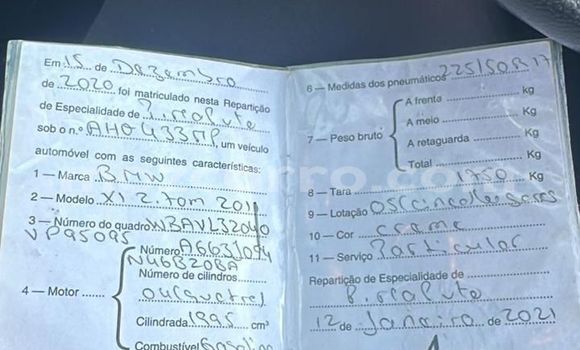 Em 15 de Dezembro
de 2020 foi matriculado nesta Repartição
de Especialidade de
sob o n.º AHG 433 MP, um veículo
automóvel com as seguintes características:
1 — Marca BMW
2 — Modelo X1 2.0m 2011
3 — Número do quadro WBAVL32040
VP95095
Número A6631094
N46B20BA
Número de cilindros
4 — Motor
Cilindrada 1995 cm³
Combustível Gasolin
6 — Medidas dos pneumáticos 225/50R17
7 — Peso bruto
A frente kg
A meio Kg
A retaguarda Kg
Total Kg
8 — Tara 1750 Kg
9 — Lotação 05 (cinco) lugares
10 — Cor creme
11 — Serviço Particular
Repartição de Especialidade de
12 de Janeiro de 2021